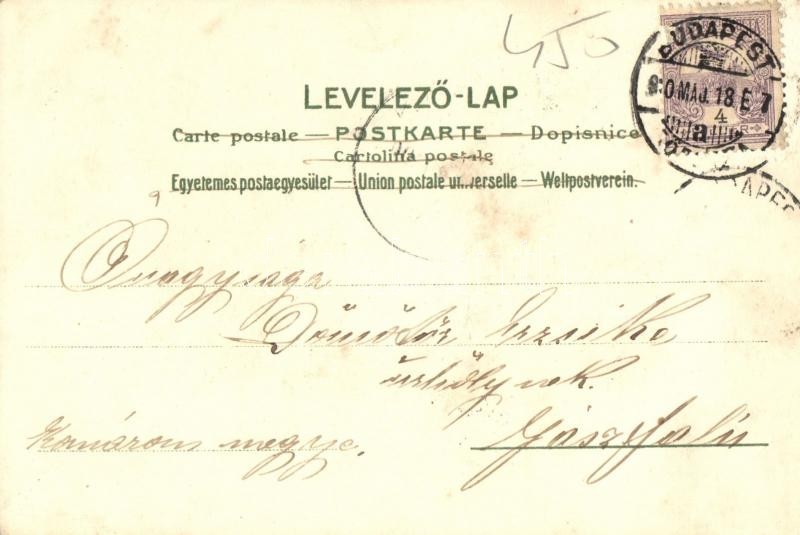 450
BUDAPEST
90 MÁJ. 18 E 7
4
a
LEVELEZŐ-LAP
Carte postale — POSTKARTE — Dopisnice
Cartolina postale
Egyetemes postaegyesület — Union postale universelle — Weltpostverein.
Onagysága
Dömötör Erzsike
úrhölgynek.
Komárom megye.
Jászfalú